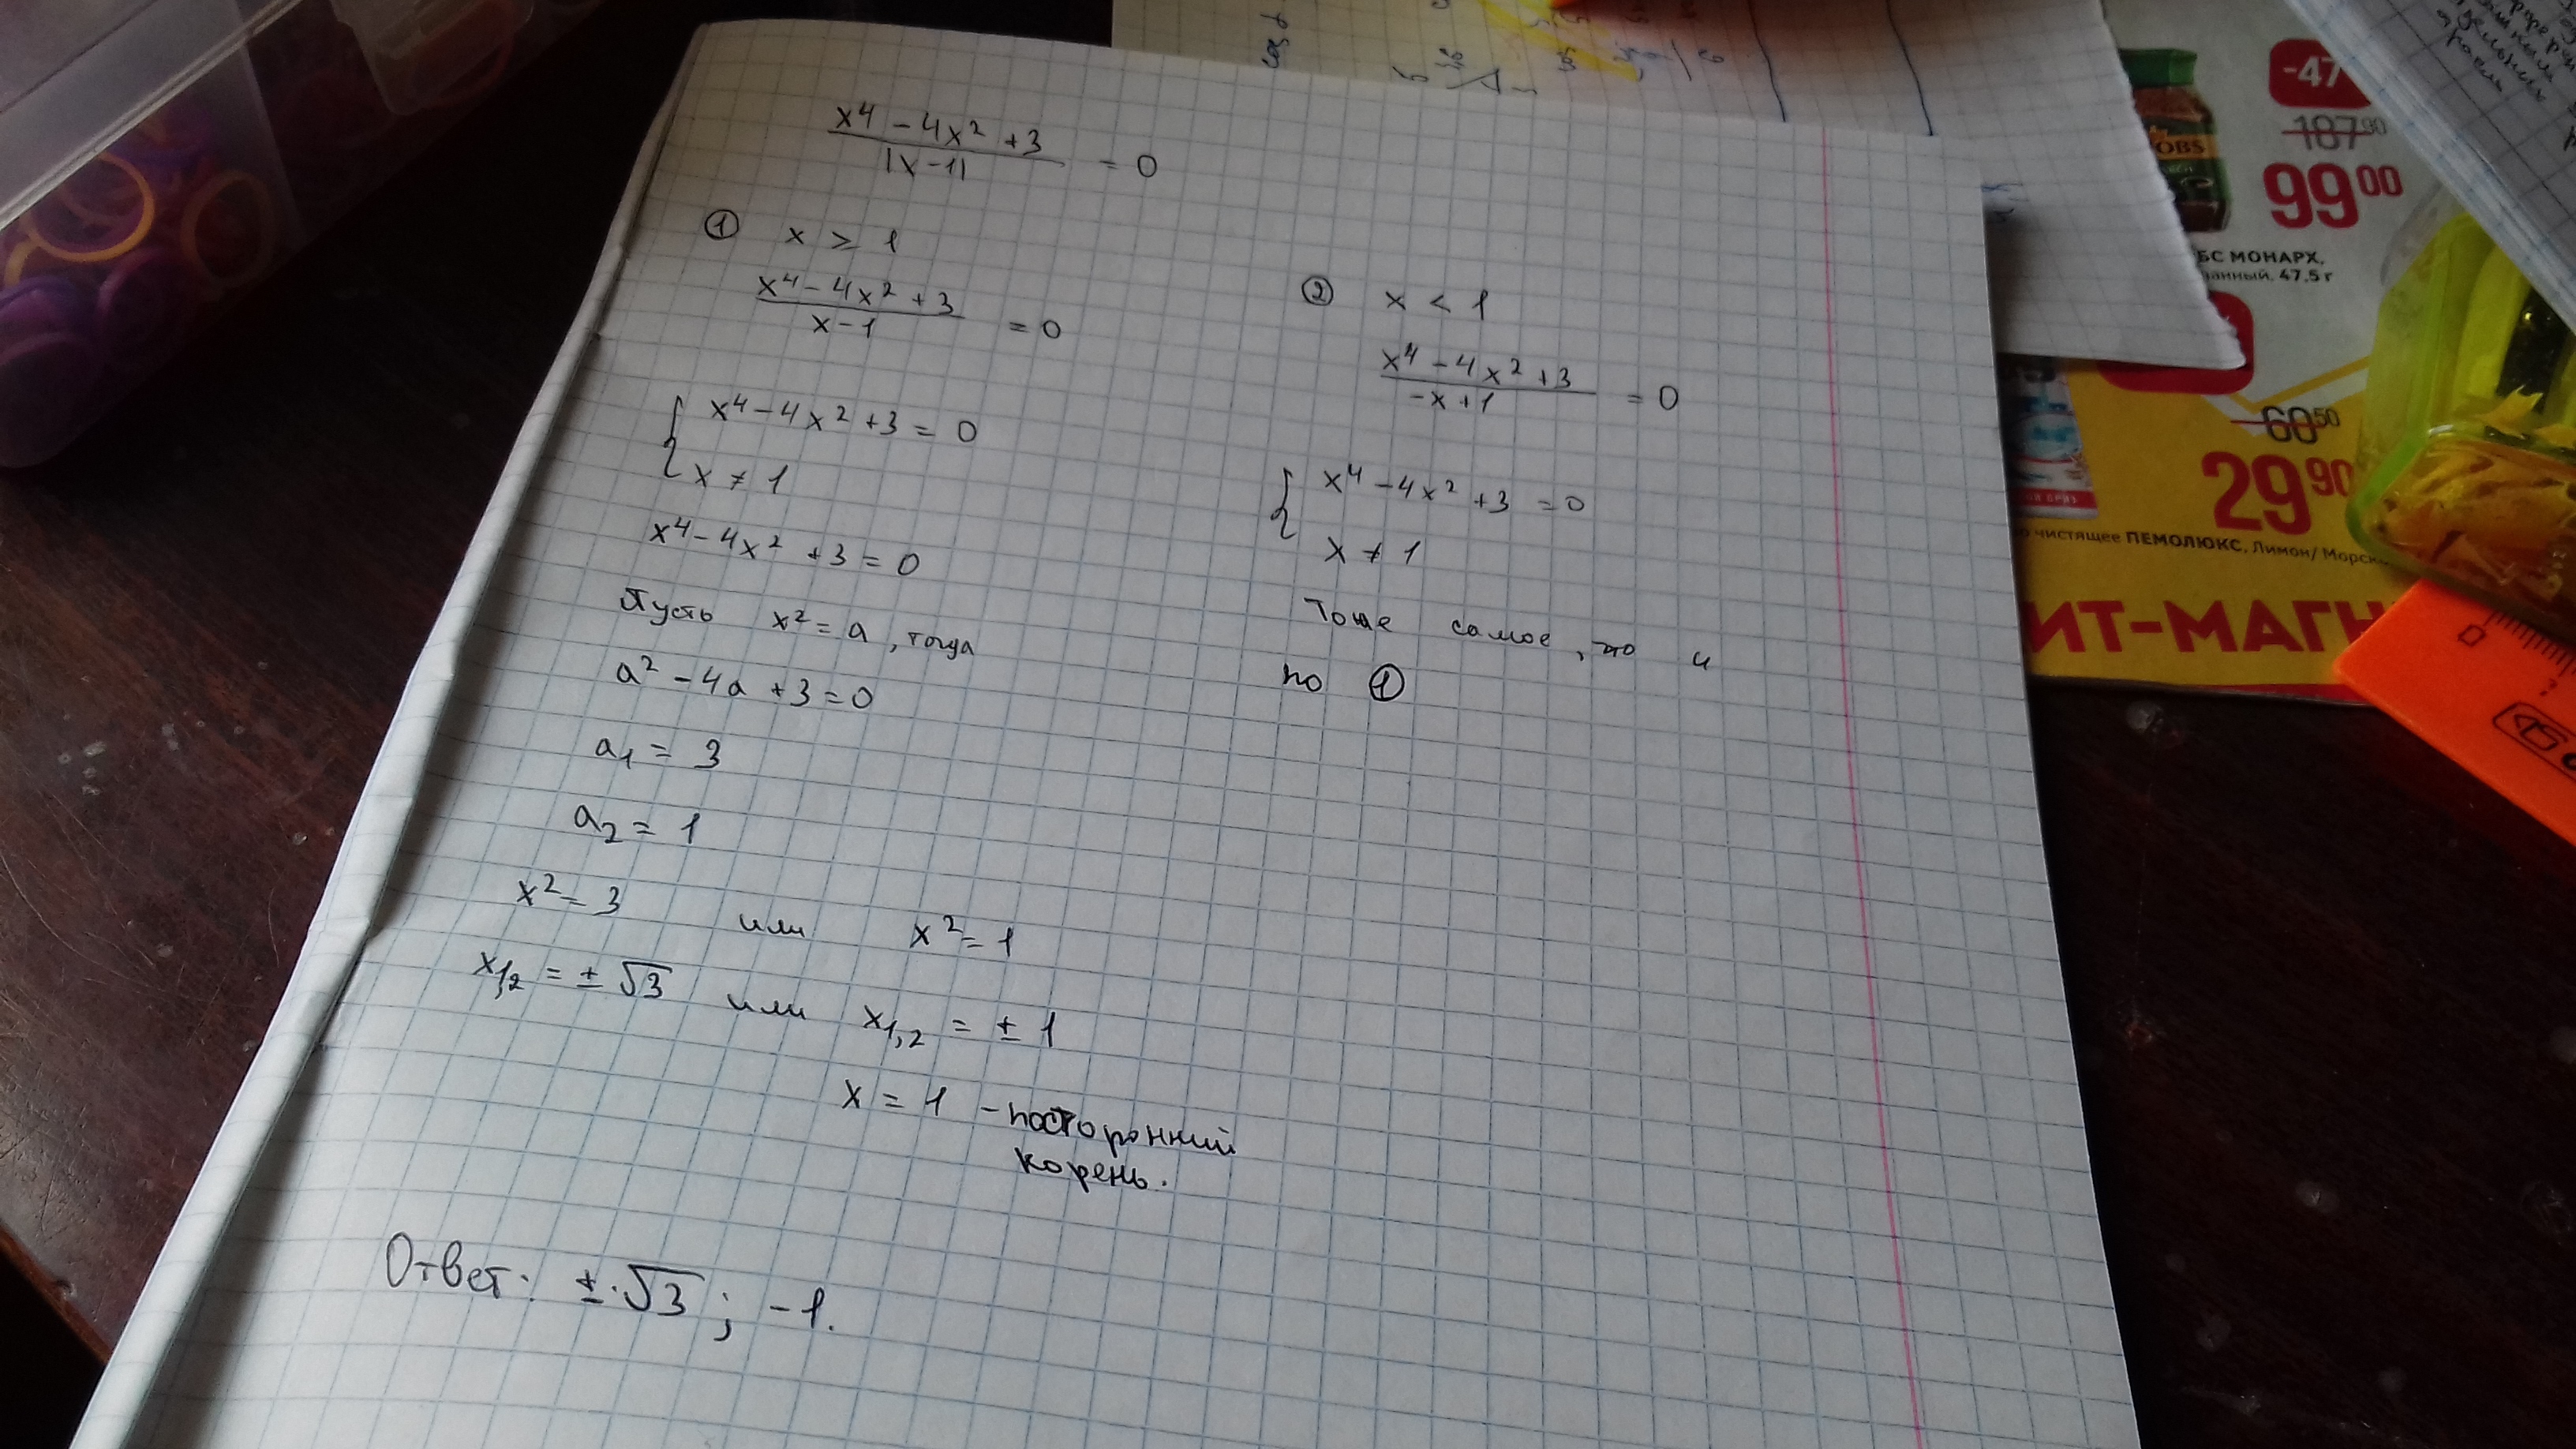 x⁴ - 4x² + 3
|x - 1|
= 0
① x ≥ 1
x⁴ - 4x² + 3
x - 1
= 0
x⁴ - 4x² + 3 = 0
x ≠ 1
x⁴ - 4x² + 3 = 0
Пусть x² = a, тогда
a² - 4a + 3 = 0
a₁ = 3
a₂ = 1
x² = 3 или x² = 1
x₁,₂ = ± √3 или x₁,₂ = ± 1
x = 1 - посторонний
корень.
Ответ: ± √3; -1.
② x < 1
x⁴ - 4x² + 3
-x + 1
= 0
x⁴ - 4x² + 3 = 0
x ≠ 1
Тоже самое, что и
по ①
-47
187⁹⁰
99⁰⁰
БС МОНАРХ,
47,5 г
60⁵⁰
29⁹⁰
чистящее ПЕМОЛЮКС, Лимон/ Морск
ИТ-МАГН
0